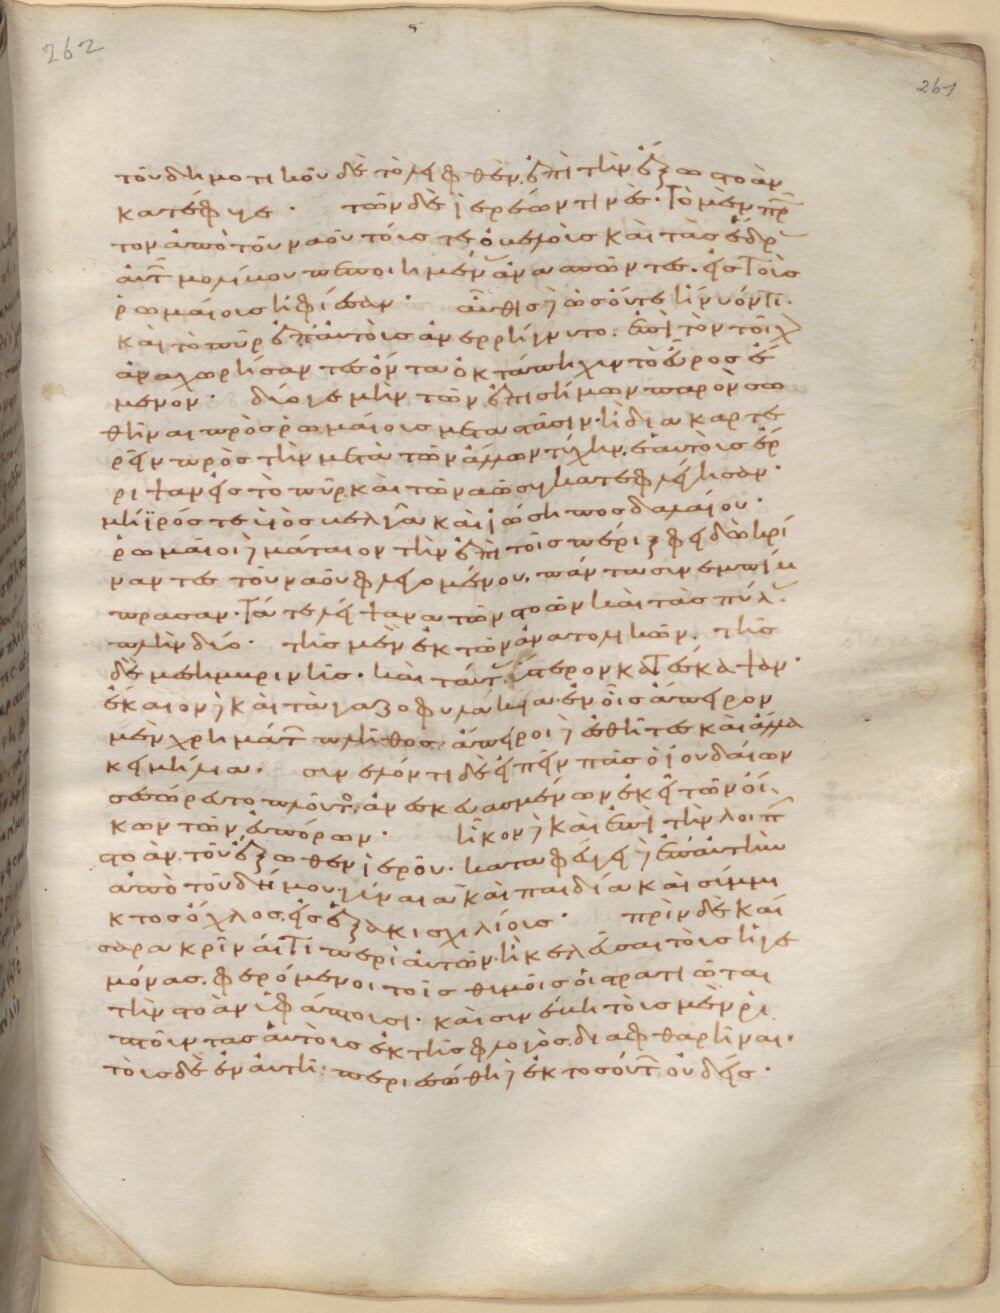 262
261
τοῦ δημοτικοῦ δὲ τὸ λειφθὲν, ἐπὶ τὴν ἔξω στοὰν
κατέφυγε. τῶν δὲ ἱερέων τινὲς. τὸ μὲν πρῶ
τον ἀπὸ τοῦ ναοῦ τούς τε ὀβελοὺς καὶ τὰς ἕδρας
αὐτῶν μολίβου πεποιημένας ἀνασπῶντες. εἰς τοὺς
ῥωμαίους ἠφίεσαν. αὖθις δ' ὡς οὔτε ἤνυόν τι.
καὶ τὸ πῦρ ἐπ' αὐτοὺς ἀνερρήγνυτο. ἐπὶ τὸν τοῖχον
ἀναχωρήσαντες ὄντα ὀκτάπηχυν τὸ εὖρος ἔ
μενον. δύο γε μὴν τῶν ἐπισήμων παρὸν σω
θῆναι πρὸς ῥωμαίους μεταστᾶσιν. ἢ διακαρτε
ρεῖν πρὸς τὴν μετὰ τῶν ἄλλων τύχην, ἑαυτοὺς ἔρ
ριψαν εἰς τὸ πῦρ καὶ τῶ ναῶ συγκατεφλέγησαν.
μηϊρός τε υἱὸς βελγᾶ καὶ ἰώσηπος δαλαίου.
ῥωμαῖοι δὲ μάταιον τὴν ἐπὶ τοῖς πέριξ φειδὼ κρί
ναντες τοῦ ναοῦ φλεγομένου, πάντα συνεπίμ
πρασαν. τά τε λείψανα τῶν στοῶν καὶ τὰς πύλας.
πλὴν δύο. τῆς μὲν ἐκ τῶν ἀνατολικῶν. τῆς
δὲ μεσημβρινῆς. καὶ ταύτας ὕστερον κατέσκαψαν.
ἔκαιον δὲ καὶ τὰ γαζοφυλάκια. ἐν οἷς ἄπειρον
μὲν χρημάτων πλῆθος. ἄπειροι δ' ἐσθῆτες καὶ ἄλλα
κειμήλια. συνελόντι δὲ εἰπεῖν πᾶς ὁ ἰουδαίων
σεσώρευτο πλοῦτος, ἀνεσκευασμένων ἐκεῖ τῶν οἴ
κων τῶν εὐπόρων. ἧκον δὲ καὶ ἐπὶ τὴν λοιπὴν
στοὰν τοῦ ἔξωθεν ἱεροῦ. καταφεύγει δ' ἐπ' αὐτὴν
ἀπὸ τοῦ δήμου. γύναια καὶ παιδία καὶ σύμμι
κτος ὄχλος. εἰς ἑξακισχιλίους. πρὶν δὲ καί
σαρα κρῖναί τι περὶ αὐτῶν. ἢ κελεῦσαι τοὺς ἡγε
μόνας. φερόμενοι τοῖς θυμοῖς οἱ στρατιῶται
τὴν στοὰν ὑφάπτουσι. καὶ συνέβη τοὺς μὲν ῥι
πτοῦντας αὐτοὺς ἐκ τῆς φλογὸς. διαφθαρῆναι.
τοὺς δὲ ἐν αὐτῆ. περιεσώθη δ' ἐκ τοσούτων οὐδείς.